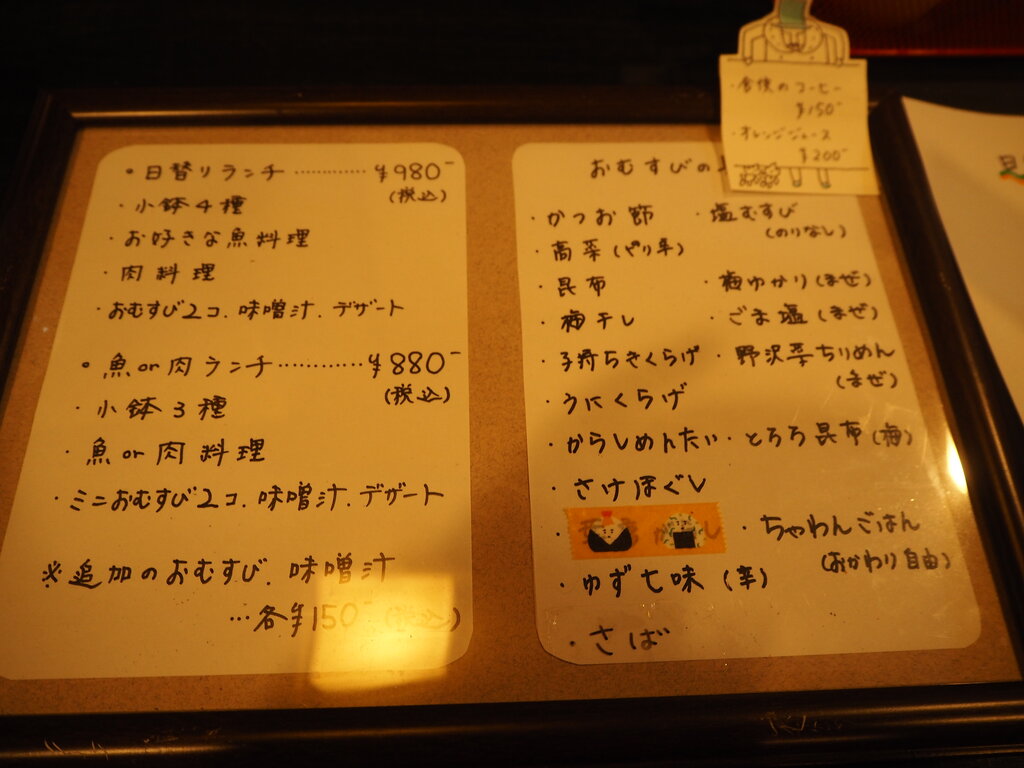 ・日替りランチ…………¥980-
(税込)
・小鉢4種
・お好きな魚料理
・肉料理
・おむすび2コ.味噌汁.デザート
・魚or肉ランチ…………¥880-
(税込)
・小鉢3種
・魚or肉料理
・ミニおむすび2コ.味噌汁.デザート
※追加のおむすび.味噌汁
…各¥150-(税込)
・食後のコーヒー
¥150-
・オレンジジュース
¥200-
おむすびの
・かつお節 ・塩むすび
(のりなし)
・高菜(ピリ辛)
・昆布 ・梅ゆかり(まぜ)
・梅干し ・ごま塩(まぜ)
・子持ちきくらげ ・野沢菜ちりめん
(まぜ)
・うにくらげ
・からしめんたい ・とろろ昆布(梅)
・さけほぐし
・ちゃわんごはん
(おかわり自由)
・ゆず七味(辛)
・さば